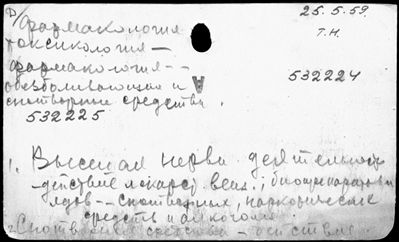 Фармакология 25.5.59.
токсикология — Т.Н.
фармакология --
обезболивающие и 532224
снотворные средства.
532225
1. Высшая нервн. деятельность
-действие лекарст. вещ.;
ядов -- снотворных, наркотические
средств и алкоголя.
2. Снотворные средства - действие